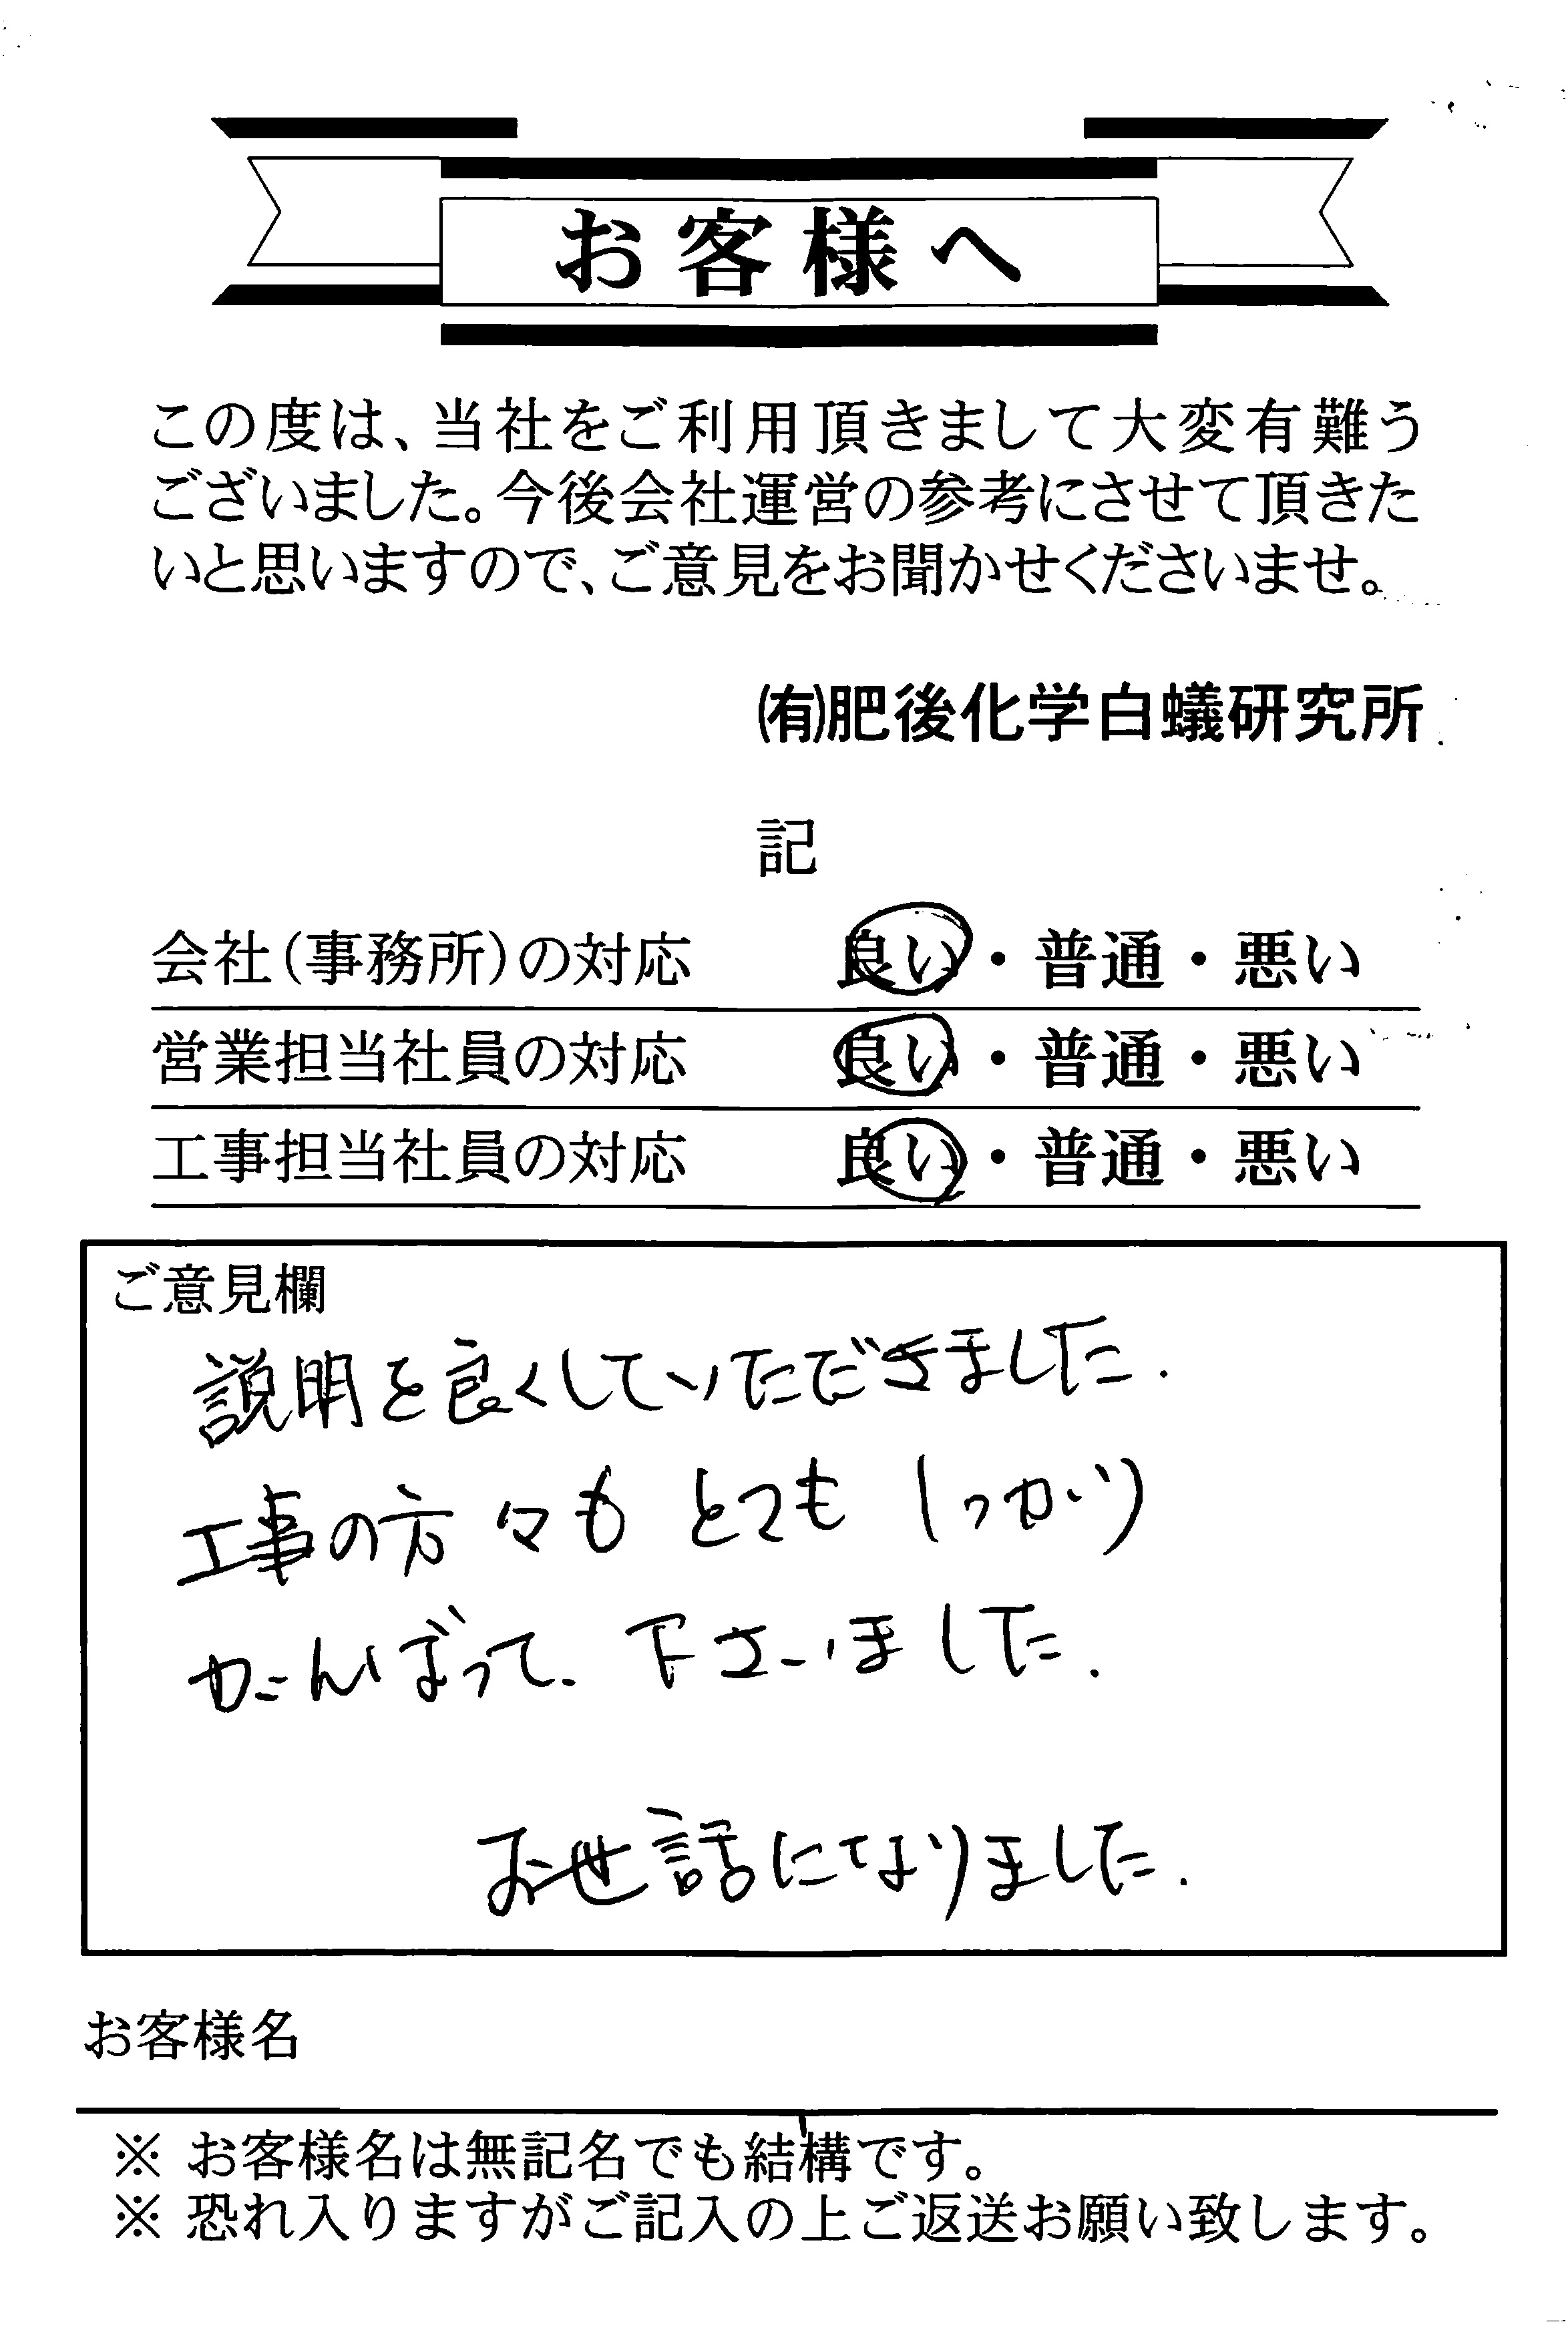 お客様へ
この度は、当社をご利用頂きまして大変有難う
ございました。今後会社運営の参考にさせて頂きた
いと思いますので、ご意見をお聞かせくださいませ。
㈲肥後化学白蟻研究所
記
会社(事務所)の対応 良い・普通・悪い
営業担当社員の対応 良い・普通・悪い
工事担当社員の対応 良い・普通・悪い
ご意見欄
説明を良くしていただきました.
工事の方々も とても しっかり
がんばって、下さいました.
お世話になりました.
お客様名
※ お客様名は無記名でも結構です。
※ 恐れ入りますがご記入の上ご返送お願い致します。